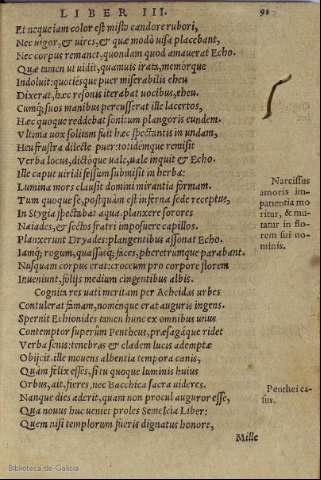 LIBER III. 91
Et neque iam color est misto candore rubori,
Nec uigor, & uires, & quæ modò uisa placebant,
Nec corpus remanet, quondam quod amauerat Echo.
Quæ tamen ut uidit, quamuis irata, memorque
Indoluit: quotiesque puer miserabilis eheu
Dixerat, hæc resonis iterabat uocibus, eheu.
Cumque suos manibus percusserat ille lacertos,
Hæc quoque reddebat sonitum plangoris eundem.
Vltima uox solitam fuit hæc spectantis in undam,
Heu frustra dilecte puer: totidemque remisit
Verba locus, dictoque uale, uale inquit & Echo.
Ille caput uiridi fessum submisit in herba:
Lumina mors clausit domini mirantia formam.
Tum quoque se, postquàm est inferna sede receptus,
In Stygia spectabat aqua. planxere sorores
Naiades, & sectos fratri imposuere capillos.
Planxerunt Dryades: plangentibus assonat Echo.
Iamque rogum, quassasque faces, pheretrumque parabant.
Nusquam corpus erat: croceum pro corpore florem
Inueniunt, folijs medium cingentibus albis.
Cognita res uati meritam per Acheidas urbes
Contulerat famam, nomenque erat auguris ingens.
Spernit Echionides tamen hunc ex omnibus unus
Contemptor superûm Pentheus, præsagáque ridet
Verba senis: tenebras & cladem lucis ademptæ
Obijcit. ille mouens albentia tempora canis,
Quàm felix esses, si tu quoque luminis huius
Orbus, ait, fieres, nec Bacchica sacra uideres.
Nanque dies aderit, quam non procul auguror esse,
Qua nouus huc ueniet proles Semeleia Liber:
Quem nisi templorum fueris dignatus honore,
Mille
Narcissus
amoris im-
patientia mo
ritur, & mu-
tatur in flo-
rem sui no-
minis.
Penthei ca-
sus.
Biblioteca de Galicia